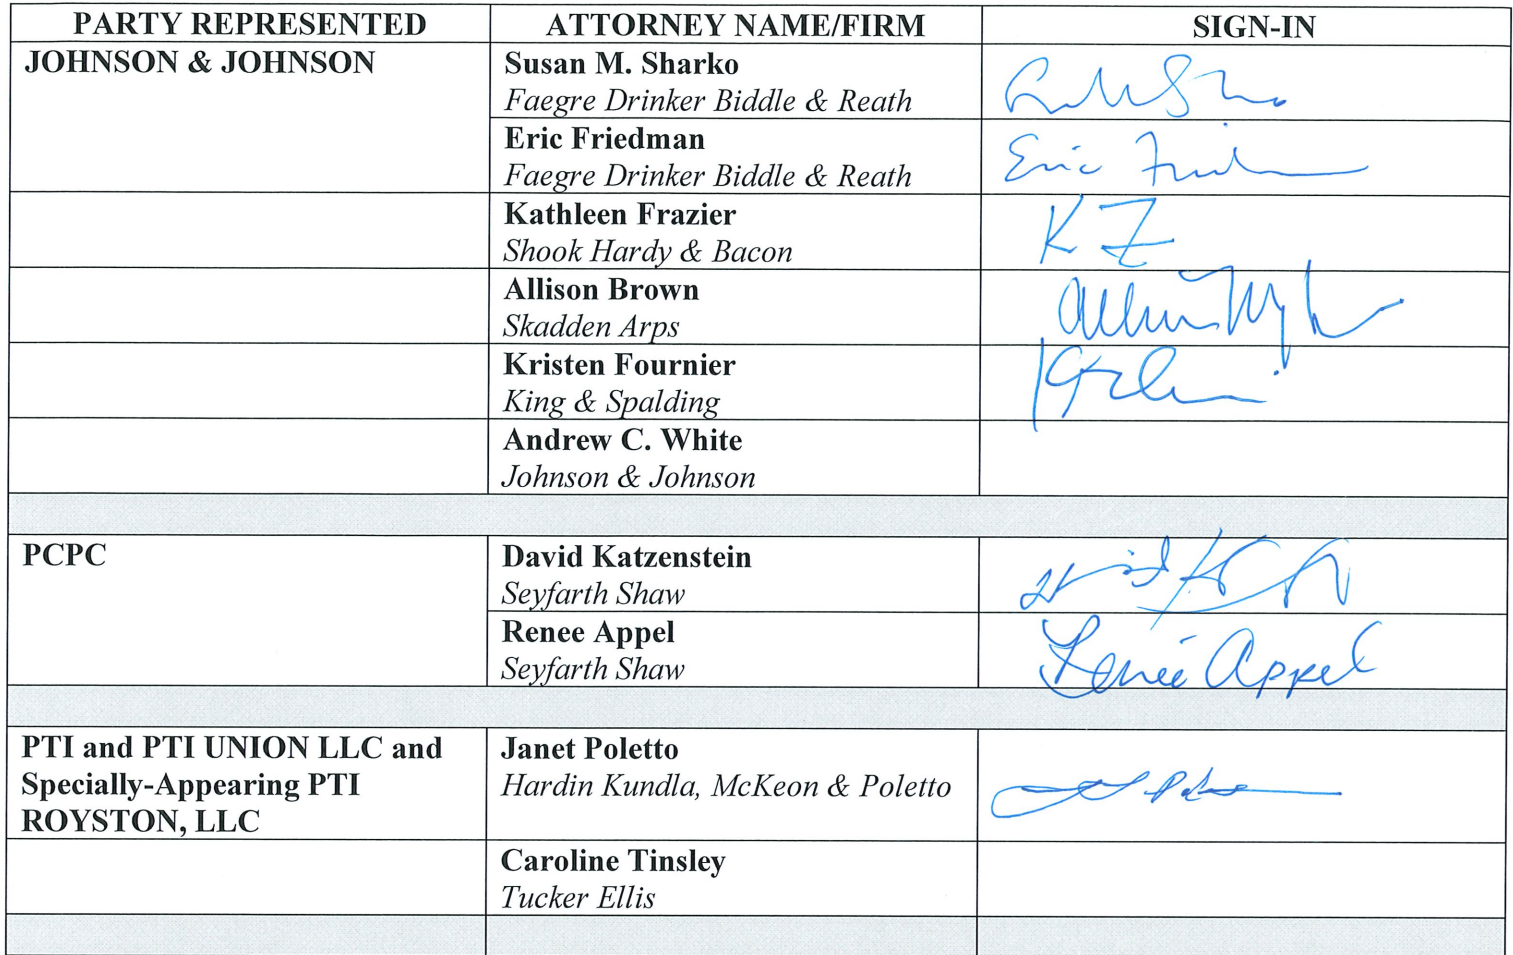 PARTY REPRESENTED ATTORNEY NAME/FIRM SIGN-IN
JOHNSON & JOHNSON Susan M. Sharko
Faegre Drinker Biddle & Reath
Eric Friedman
Faegre Drinker Biddle & Reath
Eric
Kathleen Frazier
Shook Hardy & Bacon
K F
Allison Brown
Skadden Arps
Kristen Fournier
King & Spalding
Andrew C. White
Johnson & Johnson
PCPC David Katzenstein
Seyfarth Shaw
Renee Appel
Seyfarth Shaw
Renée Appel
PTI and PTI UNION LLC and Janet Poletto
Specially-Appearing PTI Hardin Kundla, McKeon & Poletto
ROYSTON, LLC
Caroline Tinsley
Tucker Ellis